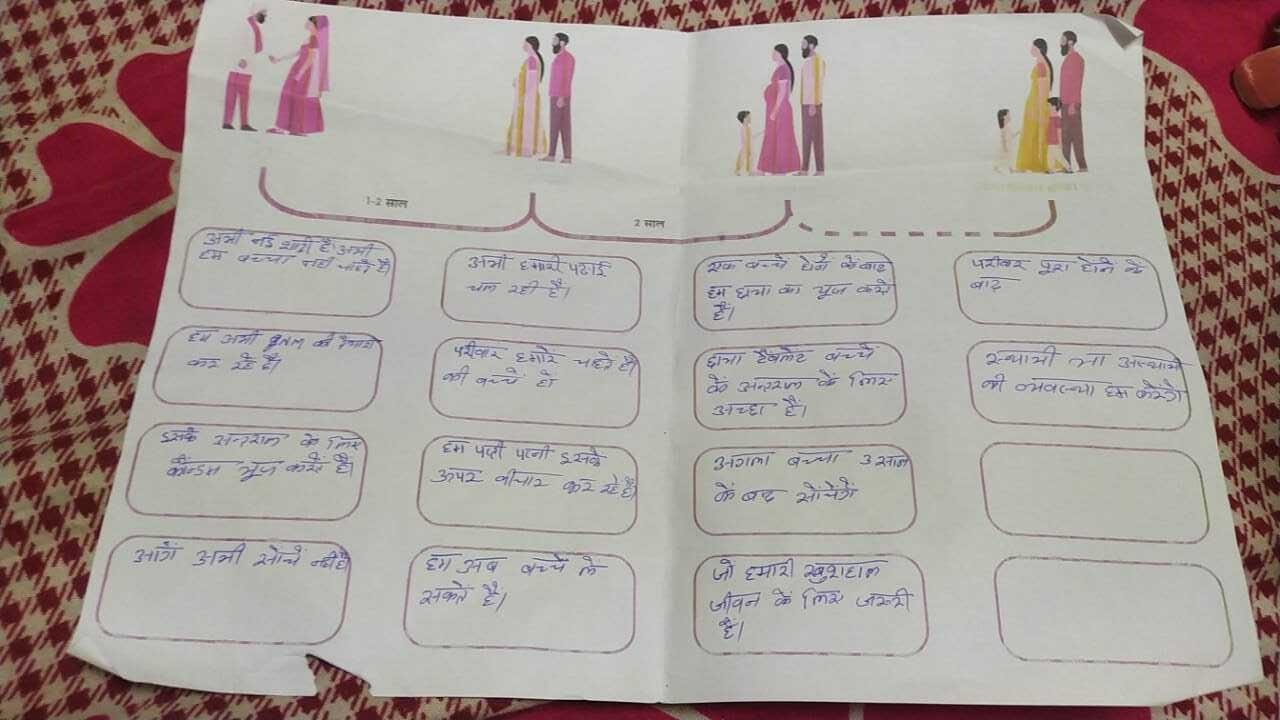 1-2 साल
2 साल
अभी नई शादी है। अभी
हम बच्चा नही चाहते है
हम अभी
कर रहे है।
इसके अन्तराल के लिए
कॉन्डम यूज करते है।
आगें अभी सोचें नही है
अभी हमारी पढाई
चल रही है।
परीवार हमारे चाहते है।
की बच्चें हों
हम पती पत्नी इसके
ऊपर वीचार कर रहे है।
हम अब बच्चें ले
सकते है।
एक बच्चे होनें के बाद
हम छाया का यूज करते
हैं।
छाया टैबलेट बच्चें
कें अन्तराल के लिए
अच्छा हैं।
अगला बच्चा 3 साल
कें बाद सोंचेगें
जो हमारी खुशहाल
जीवन कें लिए जरूरी
हैं।
परीवार पूरा होने के
बाद
स्थायी या अस्थायी
की व्यवस्था हम करेगे